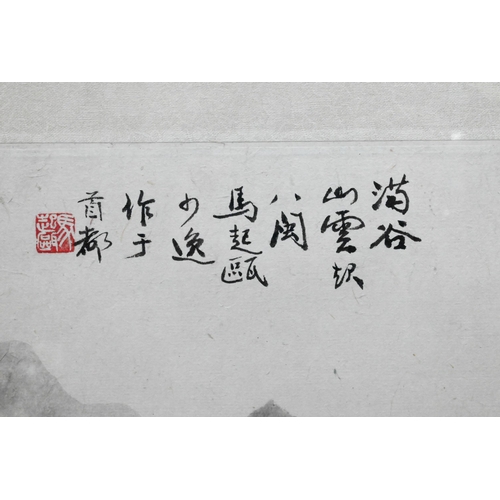 满谷
山雲起
八闽
馬起甌
少逸
作于
首都